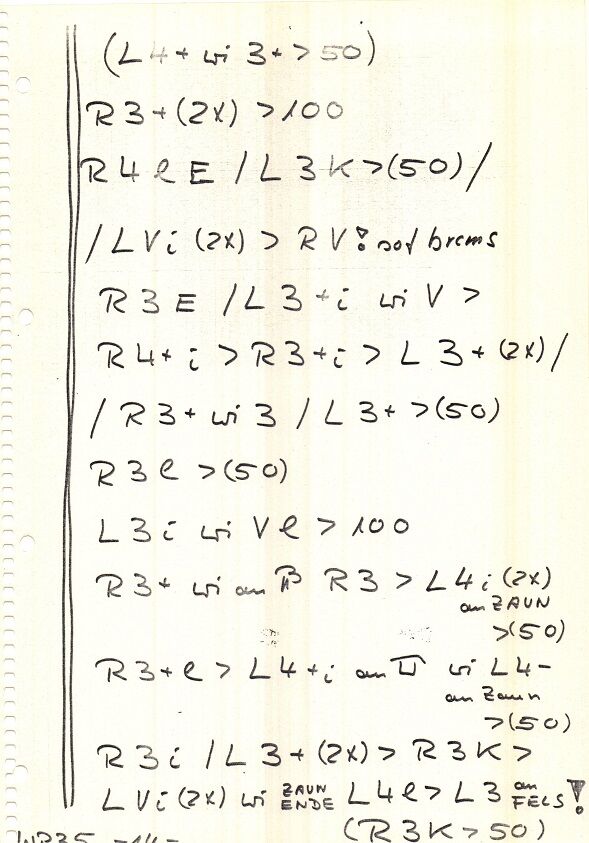 (L4+ wi 3+ > 50)
R3+ (2x) > 100
R4 l E / L3K > (50) /
/ L Vi (2x) > RV! sof brems
R3E / L3+i wi V >
R4+i > R3+i > L3+ (2x) /
/ R3+ wi 3 / L3+ > (50)
R3 l > (50)
L3i wi V l > 100
R3+ wi an R3 > L4i (2x)
an ZAUN
> (50)
R3+l > L4+i an wi L4-
an Zaun
> (50)
R3i / L3+ (2x) > R3K >
L Vi (2x) wi ZAUN ENDE L4l > L3 an FELS!
(R3K > 50)